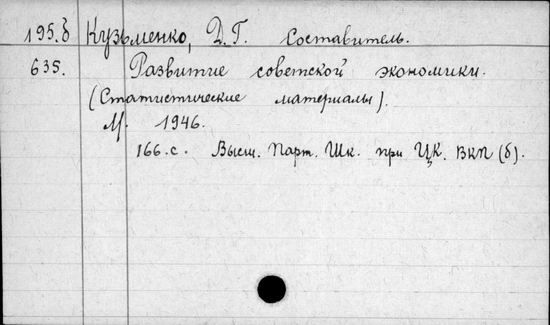 195.б Кузьменко, Д.Г. Составитель.
635. Развитие советской экономики.
(Статистические материалы).
М. 1946.
166.с. Высш. Парт. Шк. при ЦК. ВКП (б).